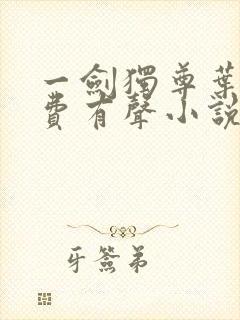 一劍獨尊葉
費有聲小說
牙簽弟